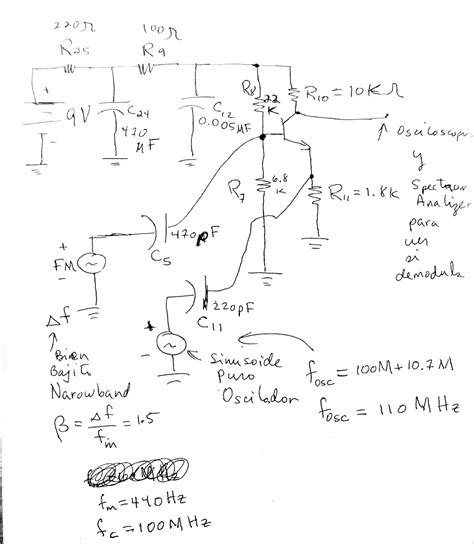 220Ω 100Ω
R25 R9
+ 9V -
C24
470
μF
C12
0.005μF
R8 22
K
R10 = 10KΩ
Osciloscopio
y
Spectrum
Analizer
para
ver
si
demodula
R7 6.8
K
R11 = 1.8K
470pF
C5
+
FM
-
220pF
C11
+
-
Δf
Bien
Bajito
Narowband
β = Δf / fm = 1.5
Sinusoide
Puro
Oscilador
fosc = 100M + 10.7M
fosc = 110 MHz
fm = 440 Hz
fc = 100 MHz